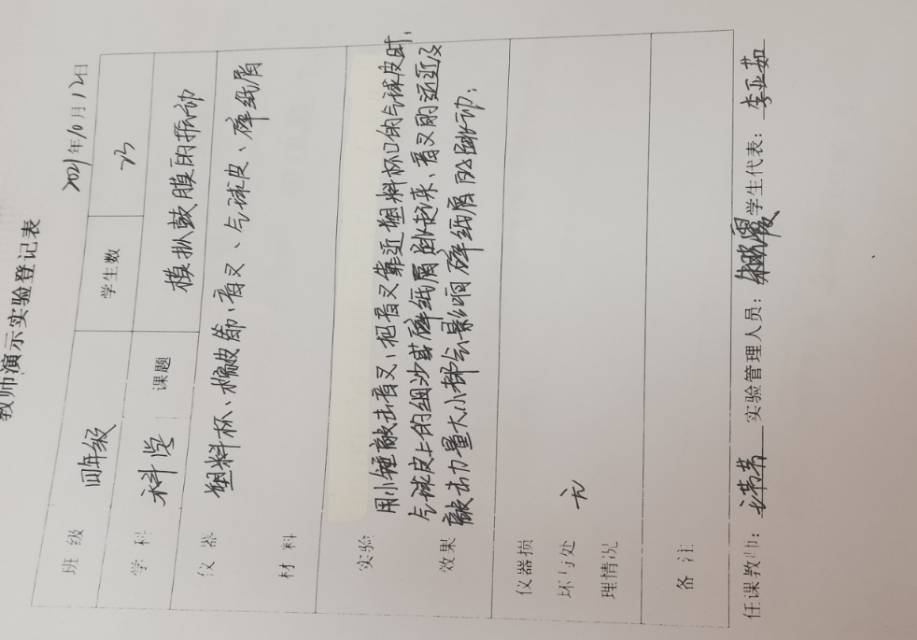 教师演示实验登记表
2021年10月12日
班 级 四年级 学生数 23
学 科 科学 课题 模拟鼓膜的振动
仪 器 材 料 塑料杯、橡皮筋、音叉、气球皮、碎纸屑
实验 效果
用小锤敲击音叉，把音叉靠近塑料杯口的气球皮时，
气球皮上的细沙或碎纸屑跳起来，音叉的远近及
敲击力量大小都会影响碎纸屑的跳动；
仪器损 坏与处 理情况 无
备 注
任课教师： 实验管理人员： 学生代表：李亚茹